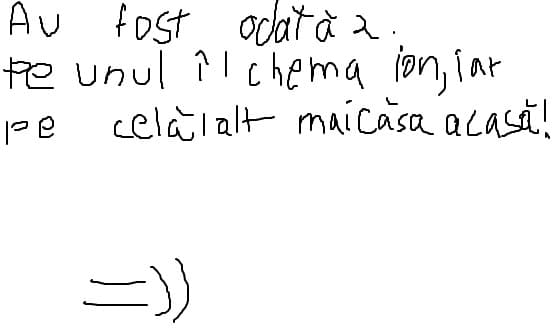 Au fost odată 2.
pe unul îl chema ion, iar
pe celălalt maicăsa acasă!
=))